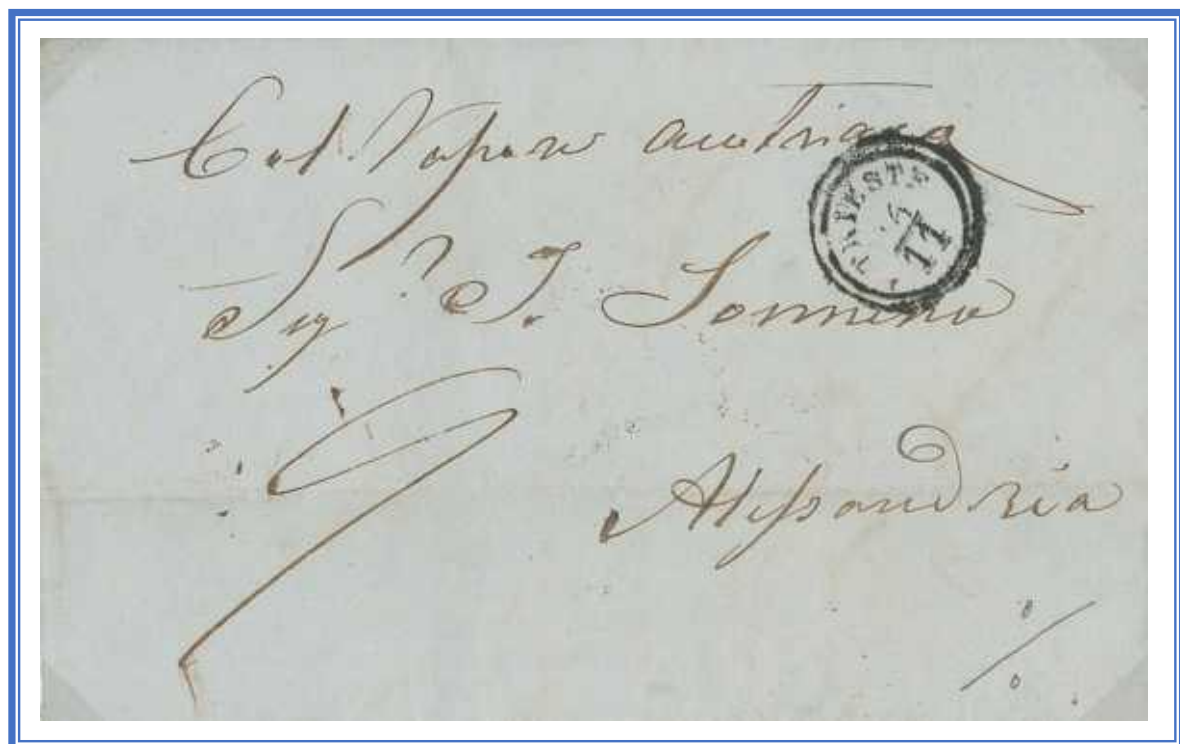 Col Vapore austriaco
TRIESTE
11
Sigr J. Sonnino
Alessandria